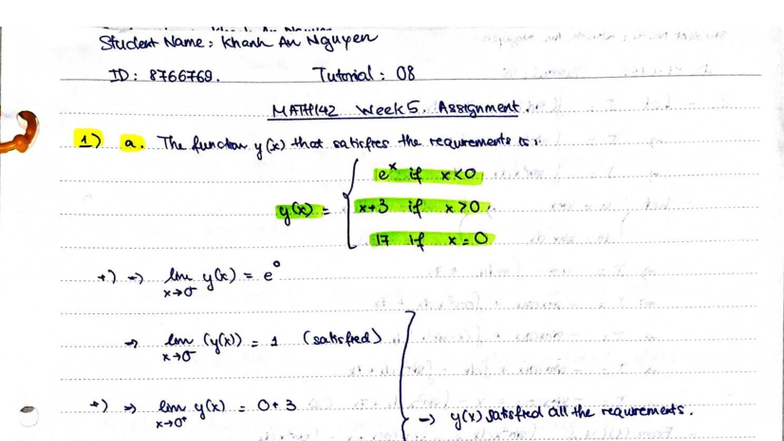 Student Name: Khanh An Nguyen
ID: 8766769. Tutorial: 08
MATH142 Week 5 Assignment.
1) a. The function y(x) that satisfies the requirements is:
y(x) = { e^x if x<0
x+3 if x>0
17 if x=0
+) → lim x→0⁻ y(x) = e^0
→ lim x→0⁻ (y(x)) = 1 (satisfied)
+) → lim x→0⁺ y(x) = 0+3
→ y(x) satisfied all the requirements.